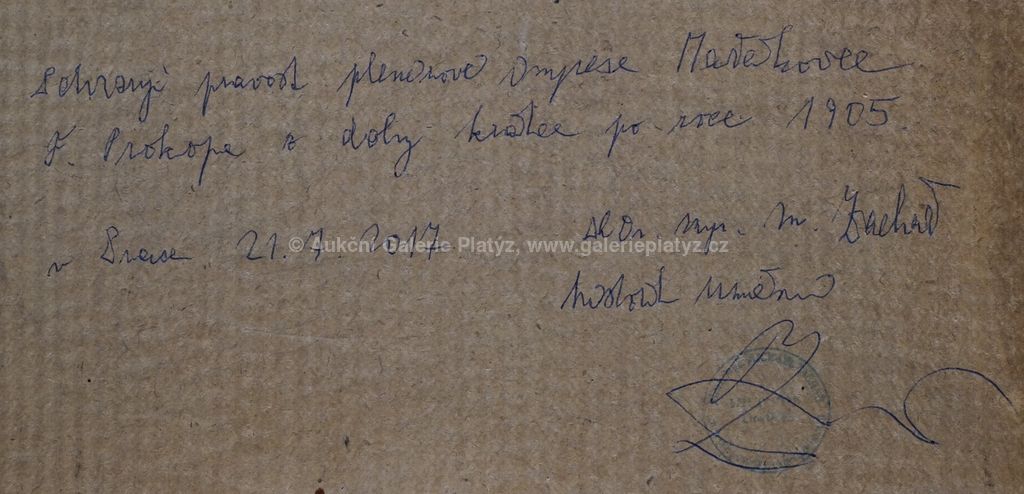 Potvrzuji pravost plenérové imprese Mařákovce
F. Prokopa z doby krátce po roce 1905.
v Praze 21. 7. 2017
PhDr. mgr. M. Zachař
historik umění
© Aukční Galerie Platýz, www.galerieplatyz.cz